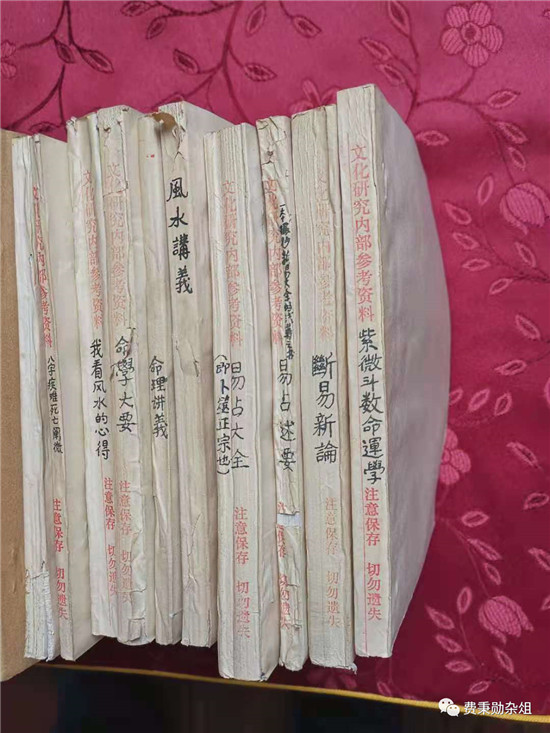 文化研究内部参考资料
八字疾难死亡阐微
注意保存 切勿遗失
文化研究内部参考资料
我看风水的心得
注意保存
文化研究内部参考资料
命學大要
注意保存 切勿遗失
命理讲義
風水講義
文化研究内部参考资料
易占大全
(即卜筮正宗也)
注意保存 切勿遗失
易占述要
注意保存 切勿遗失
文化研究内部参考资料
斷易新論
注意保存 切勿遗失
文化研究内部参考资料
紫微斗数命運學
注意保存 切勿遗失
费秉勋杂俎